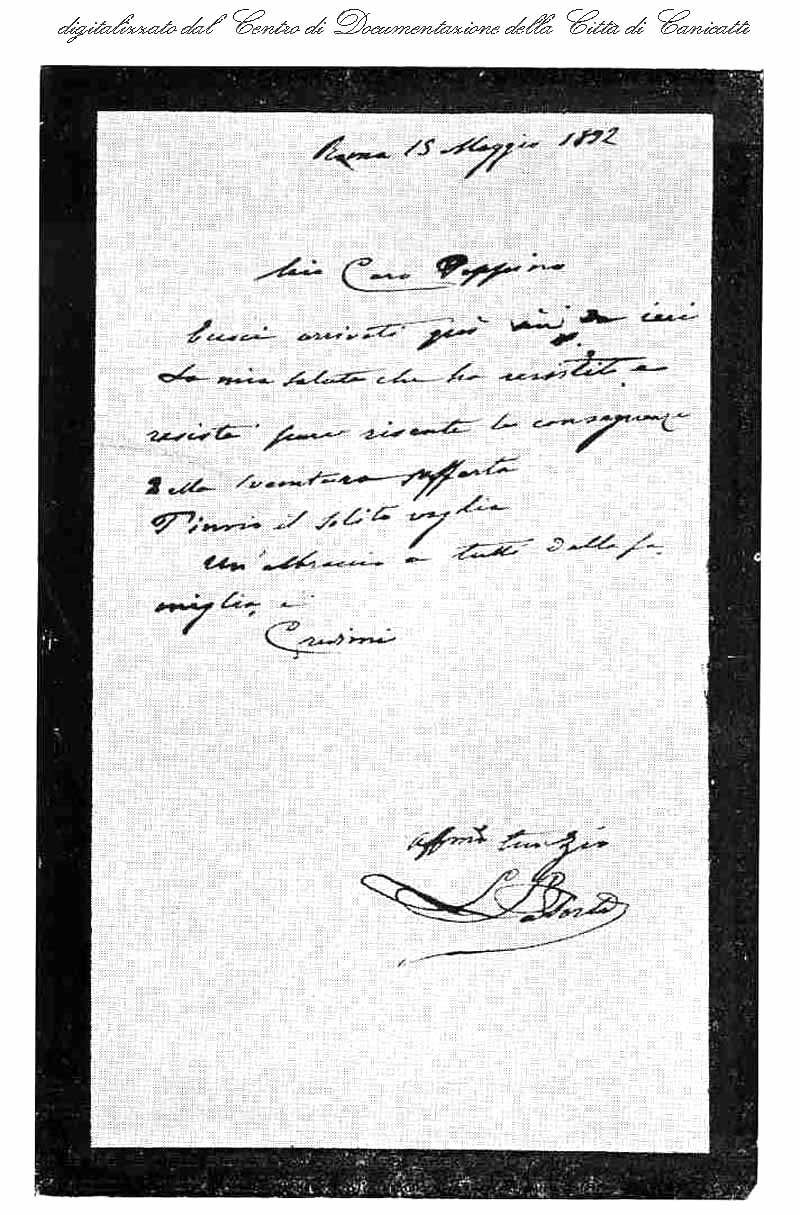 digitalizzato dal Centro di Documentazione della Città di Canicattì
Roma 15 Maggio 1892
Mio Caro Peppino
arrivato quì da ieri
La mia salute che ha resistito e
resiste risente le conseguenze
della sventura sofferta
T'invio il solito vaglia
Un abbraccio a tutti della fa-
miglia, e
Credimi
affmo tuo Zio